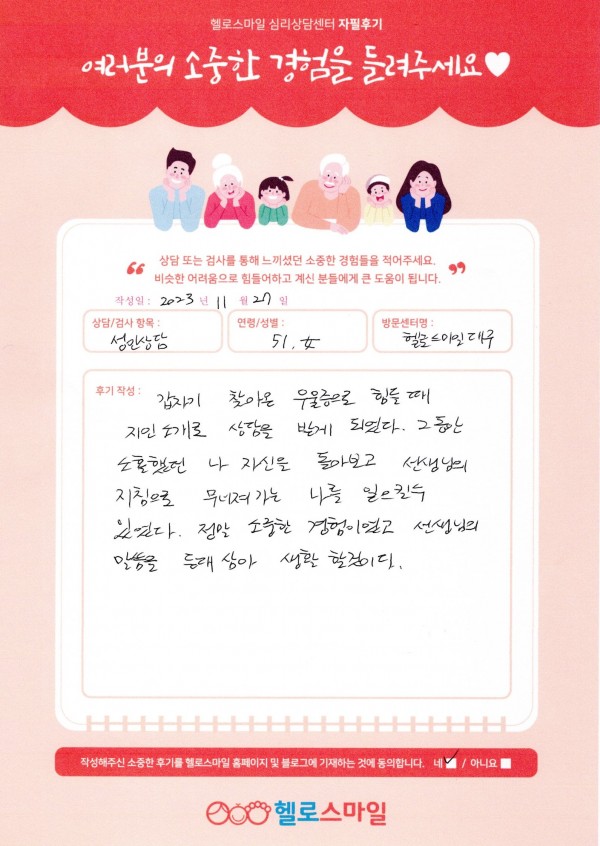 헬로스마일 심리상담센터 자필후기
여러분의 소중한 경험을 들려주세요♥
“ 상담 또는 검사를 통해 느끼셨던 소중한 경험들을 적어주세요.
비슷한 어려움으로 힘들어하고 계신 분들에게 큰 도움이 됩니다. ”
작성일 : 2023 년 11 월 27 일
상담/검사 항목 : 연령/성별 : 방문센터명 :
성인상담 51. 女 헬로스마일대구
후기 작성 : 갑자기 찾아온 우울증으로 힘들 때
지인 소개로 상담을 받게 되었다. 그동안
소홀했던 나 자신을 돌아보고 선생님의
지침으로 무너져가는 나를 일으킬수
있었다. 정말 소중한 경험이였고 선생님의
말씀을 등대 삼아 생활 할것이다.
작성해주신 소중한 후기를 헬로스마일 홈페이지 및 블로그에 기재하는 것에 동의합니다. 네 ✓ / 아니요
헬로스마일